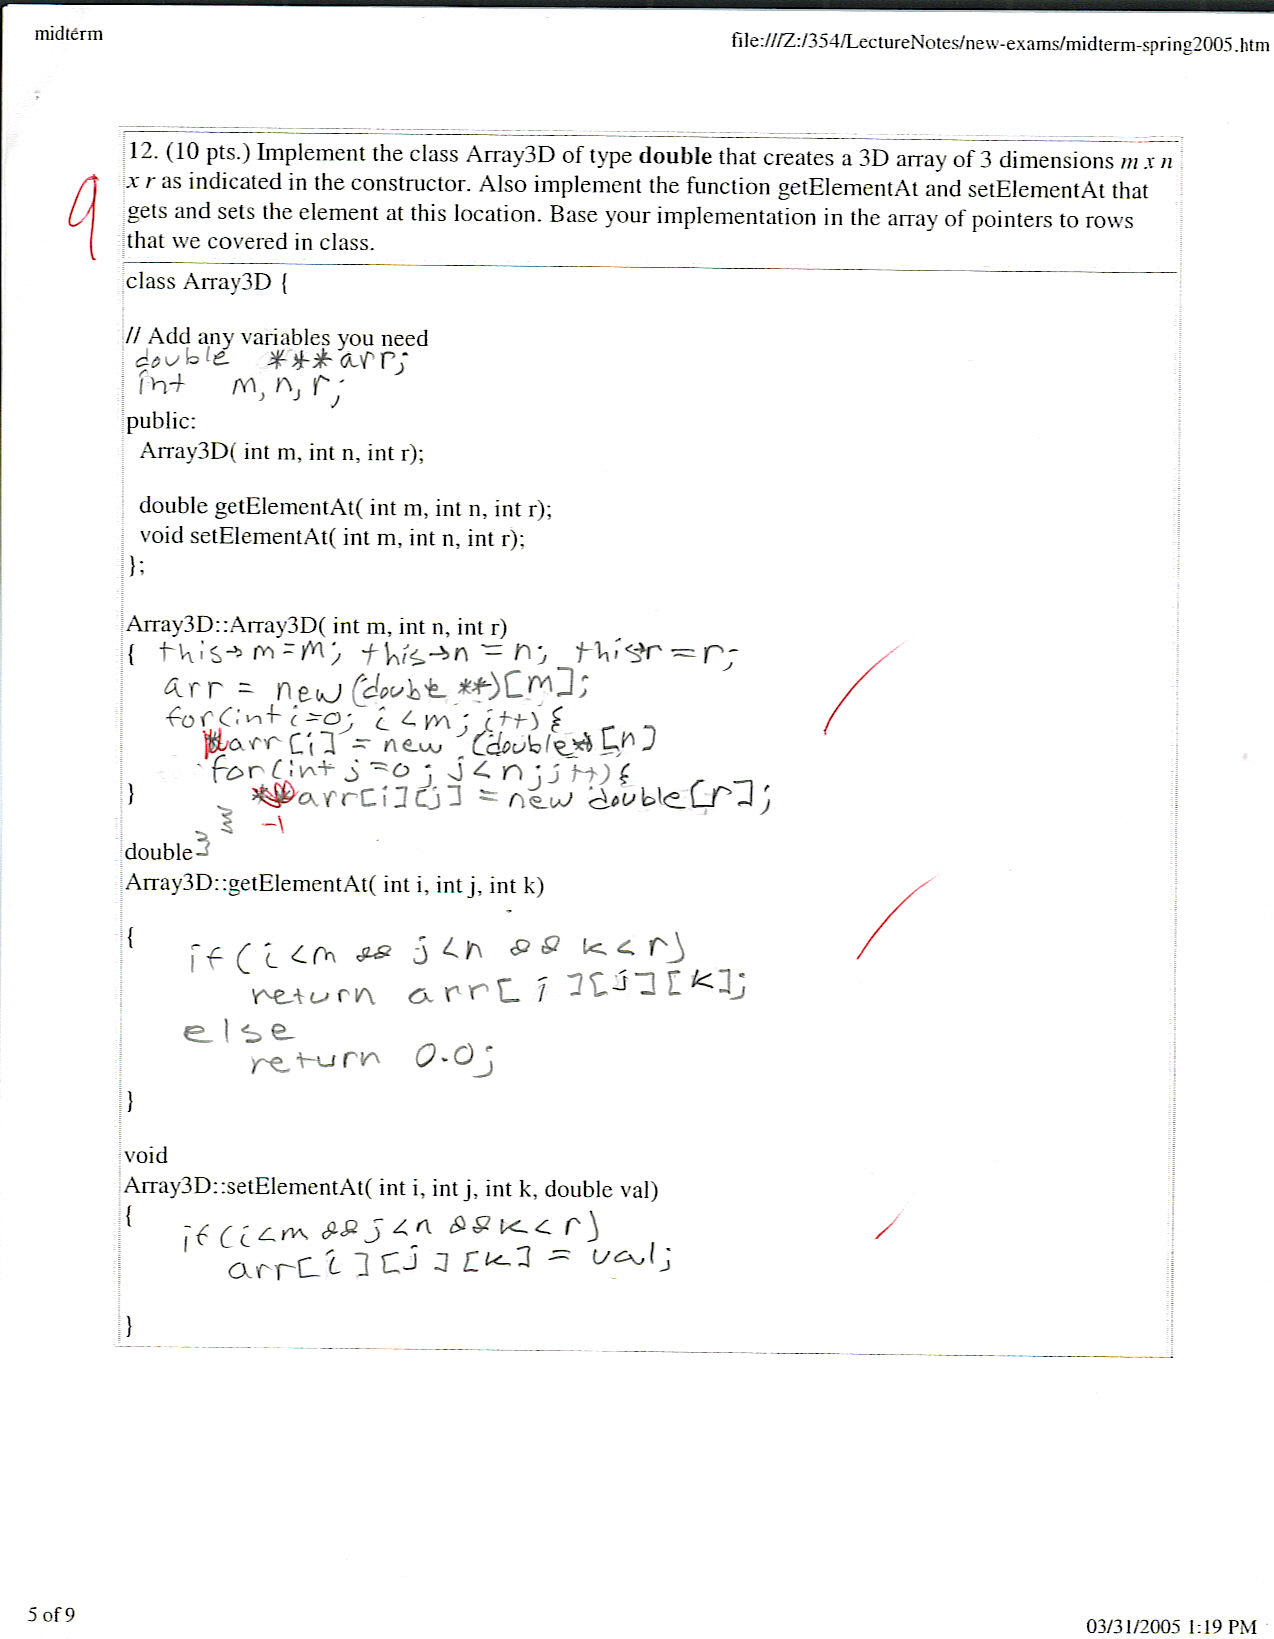 midterm
file:///Z:/354/LectureNotes/new-exams/midterm-spring2005.htm
12. (10 pts.) Implement the class Array3D of type double that creates a 3D array of 3 dimensions m x n
x r as indicated in the constructor. Also implement the function getElementAt and setElementAt that
gets and sets the element at this location. Base your implementation in the array of pointers to rows
that we covered in class.
9
class Array3D {
// Add any variables you need
double ***arr;
int m, n, r;
public:
Array3D( int m, int n, int r);
double getElementAt( int m, int n, int r);
void setElementAt( int m, int n, int r);
};
Array3D::Array3D( int m, int n, int r)
{ this→m=m; this→n=n; this→r=r;
arr = new (double **)[m];
for(int i=0; i<m; i++) {
*arr[i] = new (double*)[n]
for(int j=0; j<n; j++) {
} **arr[i][j] = new double[r];
}
-1
double }
Array3D::getElementAt( int i, int j, int k)
{
if(i<m && j<n && k<r)
return arr[i][j][k];
else
return 0.0;
}
void
Array3D::setElementAt( int i, int j, int k, double val)
{
if(i<m && j<n && k<r)
arr[i][j][k] = val;
}
5 of 9
03/31/2005 1:19 PM